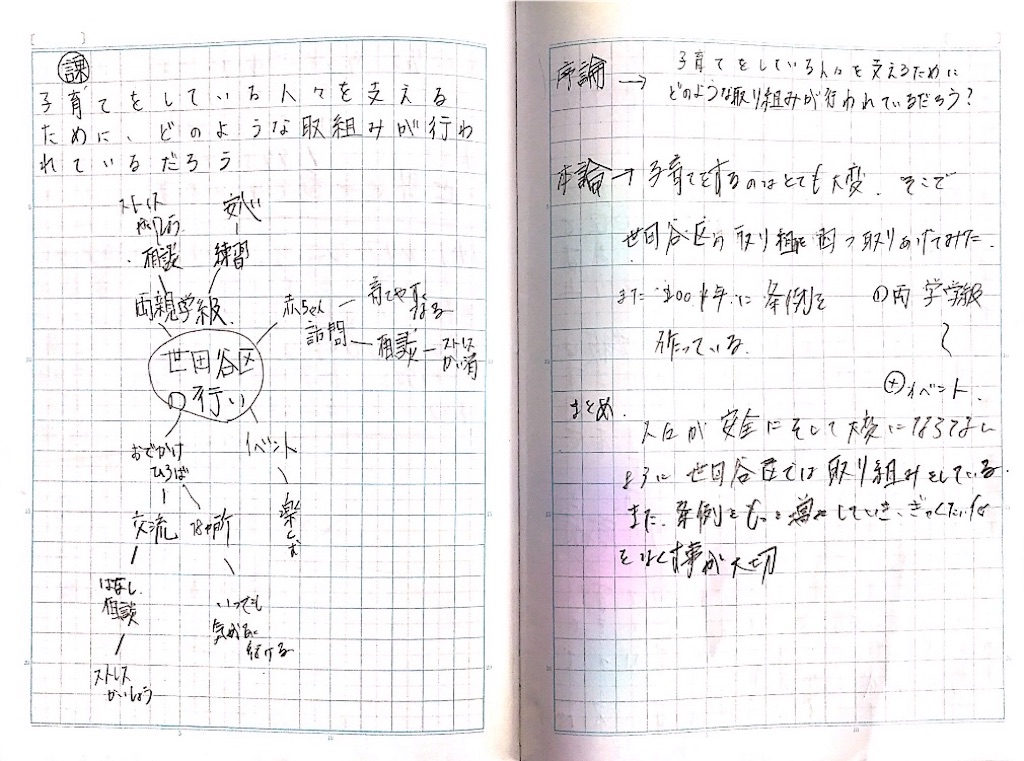 課
子育てをしている人々を支える
ために、どのような取組みが行わ
れているだろう
ストレス
相談
安心
練習
両親学級
世田谷区
の行い
赤ちゃん
訪問
育てやすく
なる
相談
ストレス
かい消
おでかけ
ひろば
イベント
楽しむ
交流
はなし
相談
ストレス
かいしょう
いつでも
気がるに
行ける
序論→
子育てをしている人々を支えるために
どのような取り組みが行われているだろう?
本論→子育てをするのはとても大変。そこで
世田谷区の取り組を四つ取りあげてみた。
また 年に条例を
作っている。
①両 学学級
④イベント.
まとめ.
人々が安全にそして大変にならない
ように世田谷区では取り組みをしている.
また、条例をもっと増やしていき、ぎゃくたい
をなくす事が大切